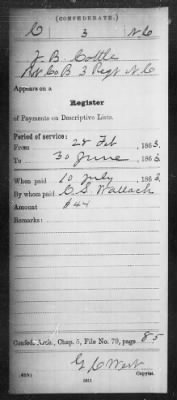 (CONFEDERATE.)
C 3 N C
J B Cottle
Co B 3 Regt N C
Appears on a
Register
of Payments on Descriptive Lists.
Period of service:
From 28 Feb, 1863
To 30 June, 1863
When paid 10 July, 1863
By whom paid C. S. Wallach
Amount $44
Remarks:
Confed. Arch., Chap. 5, File No. 79, page 85
G C West
Copyist.